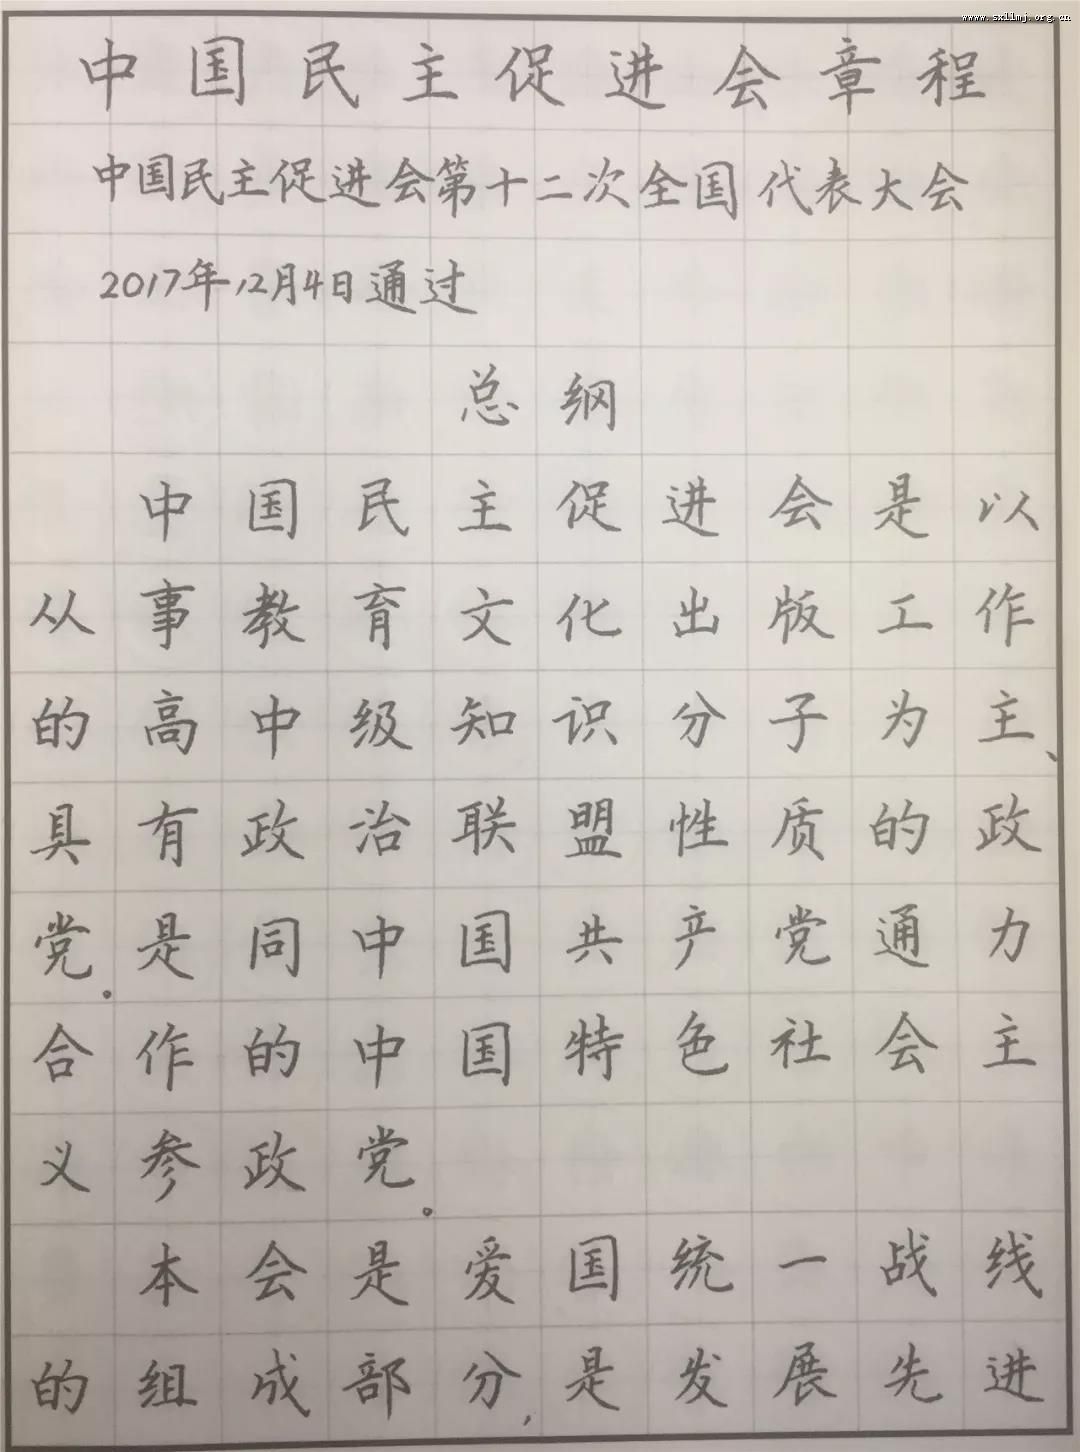 www.sxllmj.org.cn
中国民主促进会章程
中国民主促进会第十二次全国代表大会
2017年12月4日通过
总纲
中国民主促进会是以
从事教育文化出版工作
的高中级知识分子为主、
具有政治联盟性质的政
党。是同中国共产党通力
合作的中国特色社会主
义参政党。
本会是爱国统一战线
的组成部分,是发展先进